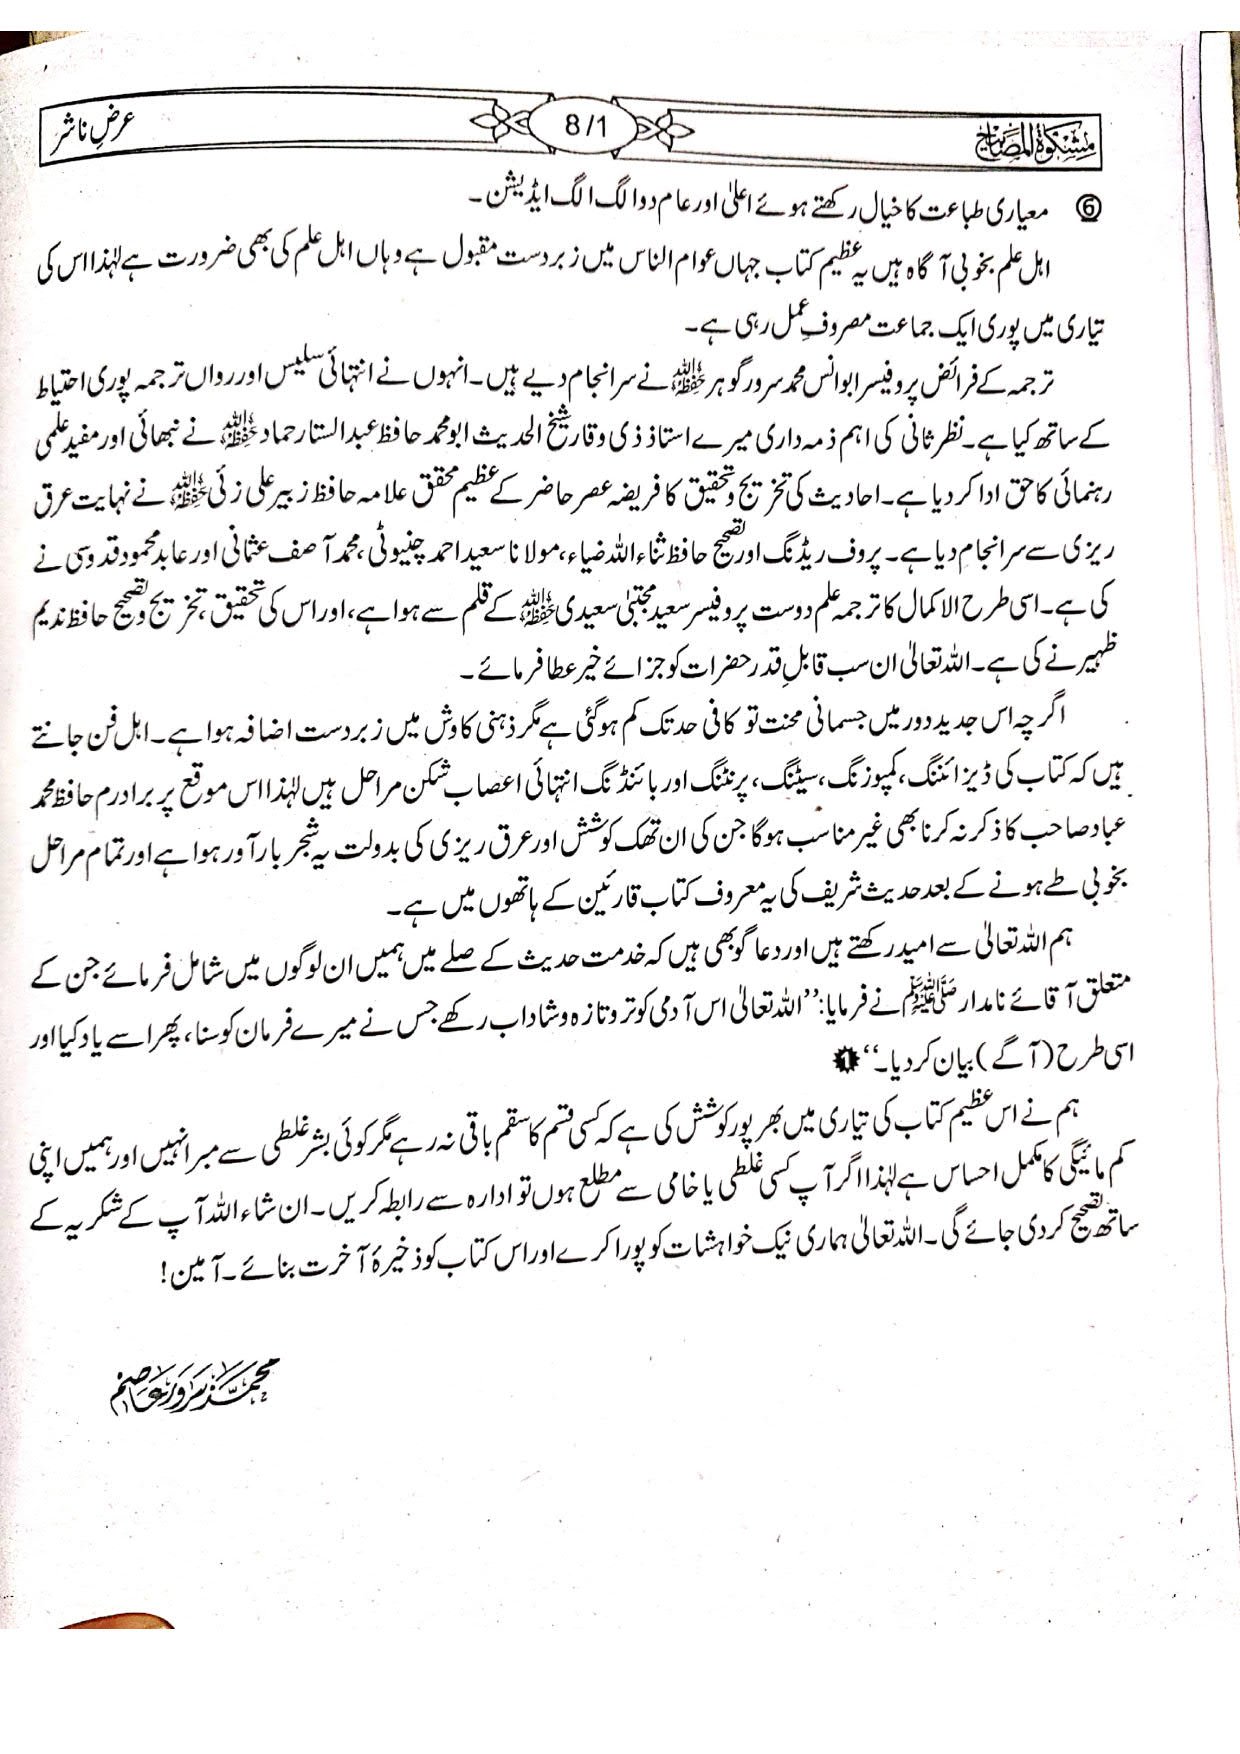 مشکوٰۃ المصابیح
8/1
عرضِ ناشر
⑥ معیاری طباعت کا خیال رکھتے ہوئے اعلیٰ اور عام دو الگ الگ ایڈیشن۔
اہل علم بخوبی آگاہ ہیں یہ عظیم کتاب جہاں عوام الناس میں زبردست مقبول ہے وہاں اہل علم کی بھی ضرورت ہے لہٰذا اس کی
تیاری میں پوری ایک جماعت مصروفِ عمل رہی ہے۔
ترجمہ کے فرائض پروفیسر ابو انس محمد سرور گوہر حفظہ اللہ نے سرانجام دیے ہیں۔ انہوں نے انتہائی سلیس اور رواں ترجمہ پوری احتیاط
کے ساتھ کیا ہے۔ نظر ثانی کی اہم ذمہ داری میرے استاذ ذی وقار شیخ الحدیث ابو محمد حافظ عبدالستار حماد حفظہ اللہ نے نبھائی اور مفید علمی
رہنمائی کا حق ادا کر دیا ہے۔ احادیث کی تخریج و تحقیق کا فریضہ عصر حاضر کے عظیم محقق علامہ حافظ زبیر علی زئی حفظہ اللہ نے نہایت عرق
ریزی سے سرانجام دیا ہے۔ پروف ریڈنگ اور تصحیح حافظ ثناء اللہ ضیاء، مولانا سعید احمد چنیوٹی، محمد آصف عثمانی اور عابد محمود قدوسی نے
کی ہے۔ اسی طرح الاکمال کا ترجمہ علم دوست پروفیسر سعید مجتبیٰ سعیدی حفظہ اللہ کے قلم سے ہوا ہے، اور اس کی تحقیق، تخریج و تصحیح حافظ ندیم
ظہیر نے کی ہے۔ اللہ تعالیٰ ان سب قابلِ قدر حضرات کو جزائے خیر عطا فرمائے۔
اگرچہ اس جدید دور میں جسمانی محنت تو کافی حد تک کم ہو گئی ہے مگر ذہنی کاوش میں زبردست اضافہ ہوا ہے۔ اہل فن جانتے
ہیں کہ کتاب کی ڈیزائننگ، کمپوزنگ، سیٹنگ، پرنٹنگ اور بائنڈنگ انتہائی اعصاب شکن مراحل ہیں لہٰذا اس موقع پر برادرم حافظ محمد
عباد صاحب کا ذکر نہ کرنا بھی غیر مناسب ہوگا جن کی ان تھک کوشش اور عرق ریزی کی بدولت یہ شجر بارآور ہوا ہے اور تمام مراحل
بخوبی طے ہونے کے بعد حدیث شریف کی یہ معروف کتاب قارئین کے ہاتھوں میں ہے۔
ہم اللہ تعالیٰ سے امید رکھتے ہیں اور دعا گو بھی ہیں کہ خدمت حدیث کے صلے میں ہمیں ان لوگوں میں شامل فرمائے جن کے
متعلق آقائے نامدار ﷺ نے فرمایا: ’’اللہ تعالیٰ اس آدمی کو تروتازہ و شاداب رکھے جس نے میرے فرمان کو سنا، پھر اسے یاد کیا اور
اسی طرح (آگے) بیان کر دیا۔‘‘ ❶
ہم نے اس عظیم کتاب کی تیاری میں بھرپور کوشش کی ہے کہ کسی قسم کا سقم باقی نہ رہے مگر کوئی بشر غلطی سے مبرا نہیں اور ہمیں اپنی
کم مائیگی کا مکمل احساس ہے لہٰذا اگر آپ کسی غلطی یا خامی سے مطلع ہوں تو ادارہ سے رابطہ کریں۔ ان شاء اللہ آپ کے شکریہ کے
ساتھ تصحیح کر دی جائے گی۔ اللہ تعالیٰ ہماری نیک خواہشات کو پورا کرے اور اس کتاب کو ذخیرۂ آخرت بنائے۔ آمین!
محمد سرور عاصم